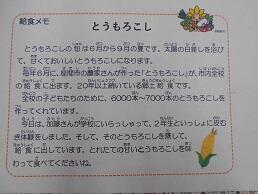 給食メモ
とうもろこし
とうもろこしの旬は6月から9月の夏です。太陽の日差しを浴び
て、甘くておいしいとうもろこしになります。
毎年6月に、座間市の農家さんが作った「とうもろこし」が、市内全校
の給食に出ます。20年以上続いている郷土給食です。
全校の子どもたちのために、6000本～7000本のとうもろこしを
作ってくれています。
今日は、加藤さんが学校にいらっしゃって、2年生といっしょに皮む
き体験をしました。そして、そのとうもろこしを蒸して、
給食に出しています。とれたての甘いとうもろこしを味
わって食べてくださいね。